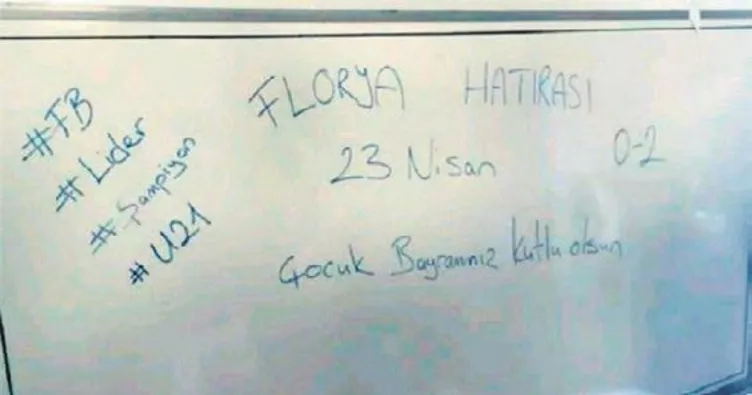 #FB
#Lider
#Şampiyon
#U21
FLORYA HATIRASI
23 Nisan 0-2
Çocuk Bayramınız kutlu olsun